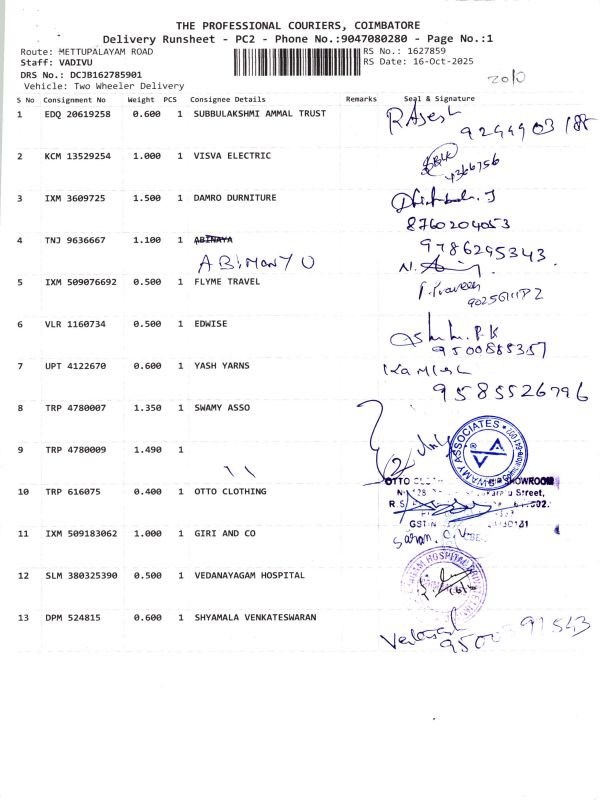 THE PROFESSIONAL COURIERS, COIMBATORE
Delivery Runsheet - PC2 - Phone No.:9047080280 - Page No.:1
Route: METTUPALAYAM ROAD RS No.: 1627859
Staff: VADIVU RS Date: 16-Oct-2025
DRS No.: DCJB162785901
Vehicle: Two Wheeler Delivery
S No Consignment No Weight PCS Consignee Details Remarks Seal & Signature
1 EDQ 20619258 0.600 1 SUBBULAKSHMI AMMAL TRUST
2 KCM 13529254 1.000 1 VISVA ELECTRIC
3 IXM 3609725 1.500 1 DAMRO DURNITURE
8760204053
4 TNJ 9636667 1.100 1 ABINAYA
9786295343
ABIMONYU
5 IXM 509076692 0.500 1 FLYME TRAVEL
6 VLR 1160734 0.500 1 EDWISE
7 UPT 4122670 0.600 1 YASH YARNS
9585526796
8 TRP 4780007 1.350 1 SWAMY ASSO
SWAMY ASSOCIATES
9 TRP 4780009 1.490 1
10 TRP 616075 0.400 1 OTTO CLOTHING
OTTO SHOWROOM
Street,
11 IXM 509183062 1.000 1 GIRI AND CO
12 SLM 380325390 0.500 1 VEDANAYAGAM HOSPITAL
HOSPITAL
13 DPM 524815 0.600 1 SHYAMALA VENKATESWARAN